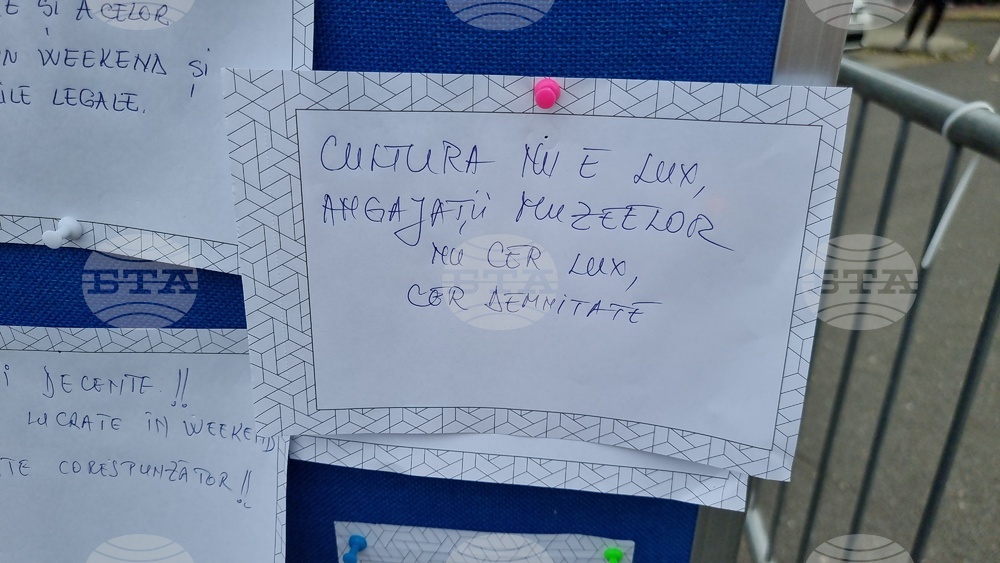 E ȘI ACELOR
N WEEKEND ȘI
ILE LEGALE.
CULTURA NU E LUX,
ANGAJAȚII MUZEELOR
NU CER LUX,
CER DEMNITATE
I DECENTE!!
LUCRATE ÎN WEEKENDS
TE CORESPUNZĂTOR!!
БТА
БТА
БТА